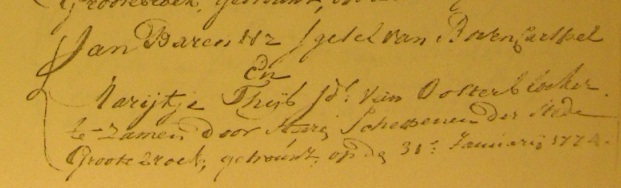 Grootebroek, getrouwt, op de
Jan Barentsz Jgesel van Bovencarspel
En
Marijtje Thijs Jd: van Oosterblocker.
te zamen door Heeren Schepenen der Stede
Grootebroek, getrouwt, op de 31e Januarij 1774.